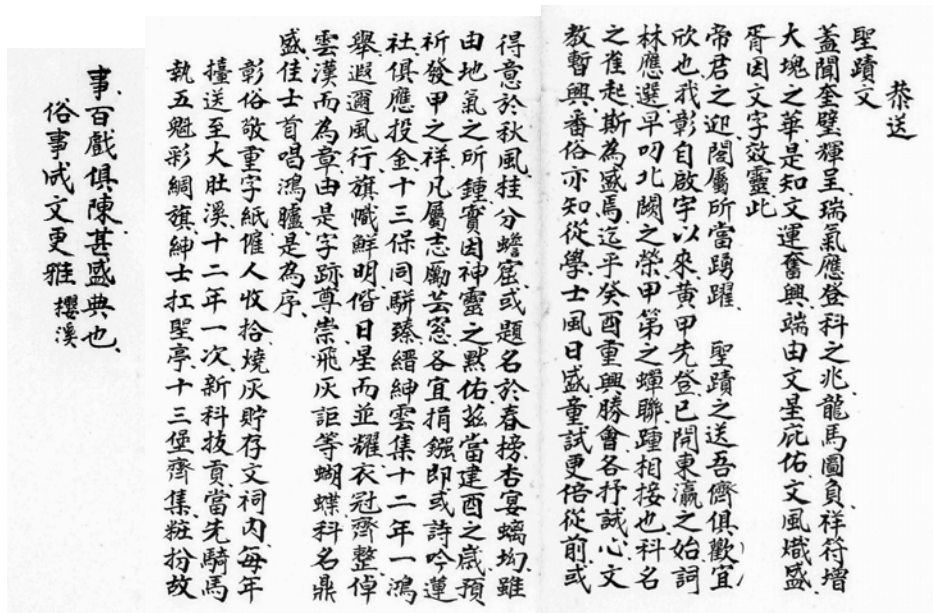 恭送
聖蹟文
蓋聞奎壁輝呈瑞氣應登科之兆龍馬圖負祥符增
大塊之華是知文運奮興端由文星庇佑文風熾盛
胥因文字效靈此
帝君之迎閤屬所當踴躍 聖蹟之送吾儕俱歡宜
欣也我彰自啟宇以來黃甲先登已開東瀛之始詞
林應選早叨北闕之榮甲第之蟬聯踵相接也科名
之雀起斯為盛焉迄乎癸酉重興勝會各抒誠心文
教暫興番俗亦知從學士風日盛童試更倍從前或
得意於秋風桂分蟾窟或題名於春榜杏宴螭坳雖
由地氣之所鍾實因神靈之默佑茲當建酉之歲預
祈發甲之祥凡屬志勵芸窓各宜捐鏹即或詩吟蓮
社俱應投金十三保同駢臻縉紳雲集十二年一鴻
舉遐邇風行旗幟鮮明偕日星而並耀衣冠齊整倬
雲漢而為章由是字跡尊崇飛灰詎等蝴蝶科名鼎
盛佳士首唱鴻臚是為序
彰俗敬重字紙催人收拾燒灰貯存文祠內每年
擡送至大肚溪十二年一次新科拔貢當先騎馬
執五魁彩綢旗紳士扛聖亭十三堡齊集粧扮故
事百戲俱陳甚盛典也
俗事成文更雅 櫻溪